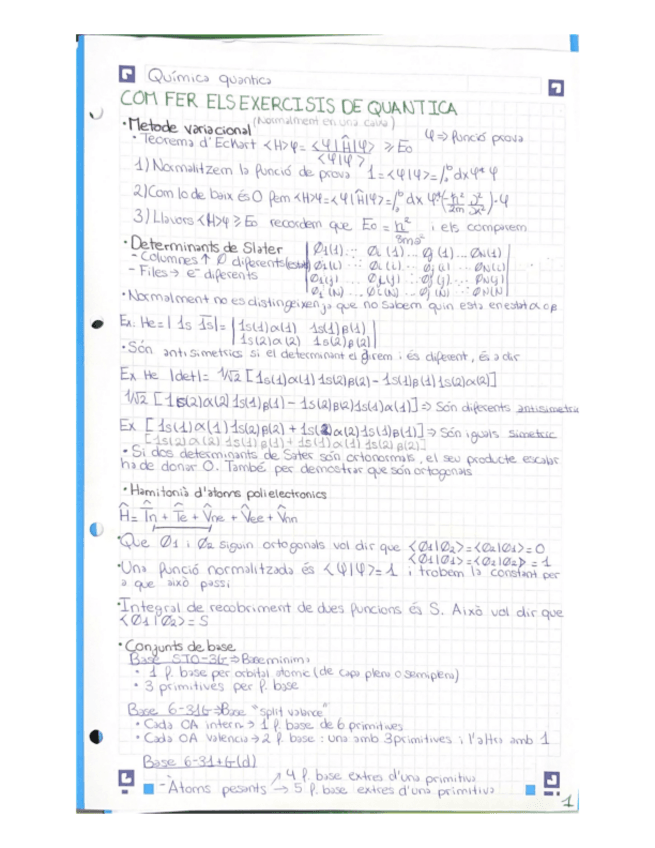 Química quantica
COM FER ELS EXERCISIS DE QUANTICA
• Metode variacional (Normalment en una caixa)
• Teorema d'Echart <H>φ = <φ|Ĥ|φ> / <φ|φ> ≥ E0   φ → funció prova
1) Normalitzem la funció de prova 1 = <φ|φ> = ∫ dx φ* φ
2) Com lo de baix és 0 fem <H>φ = <φ|Ĥ|φ> = ∫ dx φ* (-ħ²/2m) · φ
3) Llavors <H>φ ≥ E0 recordem que E0 = h²/8ma² i els comparem
• Determinants de Slater
- Columnes ↑ Ø diferents
- Files → e⁻ diferents
• Normalment no es distingeixen ja que no sabem quin esta en estat α o β
Ex. He = | 1s 1s̄ | = | 1s(1)α(1) 1s(1)β(1) |
| 1s(2)α(2) 1s(2)β(2) |
• Són antisimetrics si el determinant el girem i és diferent, és a dir
Ex He |det| = 1/√2 [1s(1)α(1) 1s(2)β(2) - 1s(1)β(1) 1s(2)α(2)]
1/√2 [1s(2)α(2) 1s(1)β(1) - 1s(2)β(2) 1s(1)α(1)] ⇒ Són diferents antisimetric
Ex [1s(1)α(1) 1s(2)β(2) + 1s(2)α(2) 1s(1)β(1)] ⇒ Són iguals simetric
[1s(2)α(2) 1s(1)β(1) + 1s(1)α(1) 1s(2)β(2)]
• Si dos determinants de Sater són ortonormals, el seu producte escalar
ha de donar 0. També per demostrar que són ortogonals
• Hamitonià d'atoms polielectronics
Ĥ = T̂n + T̂e + V̂ne + V̂ee + V̂nn
• Que Ø1 i Ø2 siguin ortogonals vol dir que <Ø1|Ø2> = <Ø2|Ø1> = 0
<Ø1|Ø1> = <Ø2|Ø2> = 1
• Una funció normalitzada és <φ|φ> = 1 i trobem la constant per
a que això passi
• Integral de recobriment de dues funcions és S. Això vol dir que
<Ø1|Ø2> = S
• Conjunts de base
Base STO-3G ⇒ Base mínima
• 1 f. base per orbital atomic (de capa plena o semiplena)
• 3 primitives per f. base
Base 6-31G ⇒ Base "split valence"
• Cada OA intern → 1 f. base de 6 primitives
• Cada OA valencia → 2 f. base : una amb 3 primitives i l'altra amb 1
Base 6-31+G(d)
- Àtoms pesants ↗ 4 f. base extres d'una primitiva
→ 5 f. base extres d'una primitiva
1